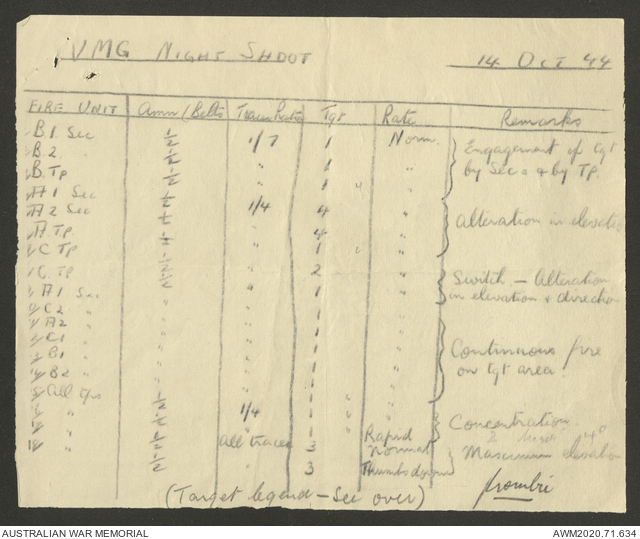 VMG NIGHT SHOOT 14 OCT 44
FIRE UNIT Amn/Belts Tracer Ratio Tgt Rate Remarks
B1 Sec 1/7 1 Norm. Engagement of tgt
B2 " " 1 " by Secs & by TP.
B. TP " 1 "
A1 Sec " 1 "
A2 Sec 1/4 4 " alteration in elevation
A TP " 4 "
C TP " 1 "
C. TP " 2 " Switch — Alteration
A1 Sec " 1 " in elevation & direction
C2 " " 1 "
A2 " " 1 "
C1 " " 1 " Continuous fire
B1 " " 1 " on tgt area.
B2 " " 1 "
All Tps " 1 "
" 1/4 1 " Concentration.
" All tracer 3 Rapid
Normal Maximum elevation
3 Thumbs down
(Target legend — See over)
AUSTRALIAN WAR MEMORIAL AWM2020.71.634